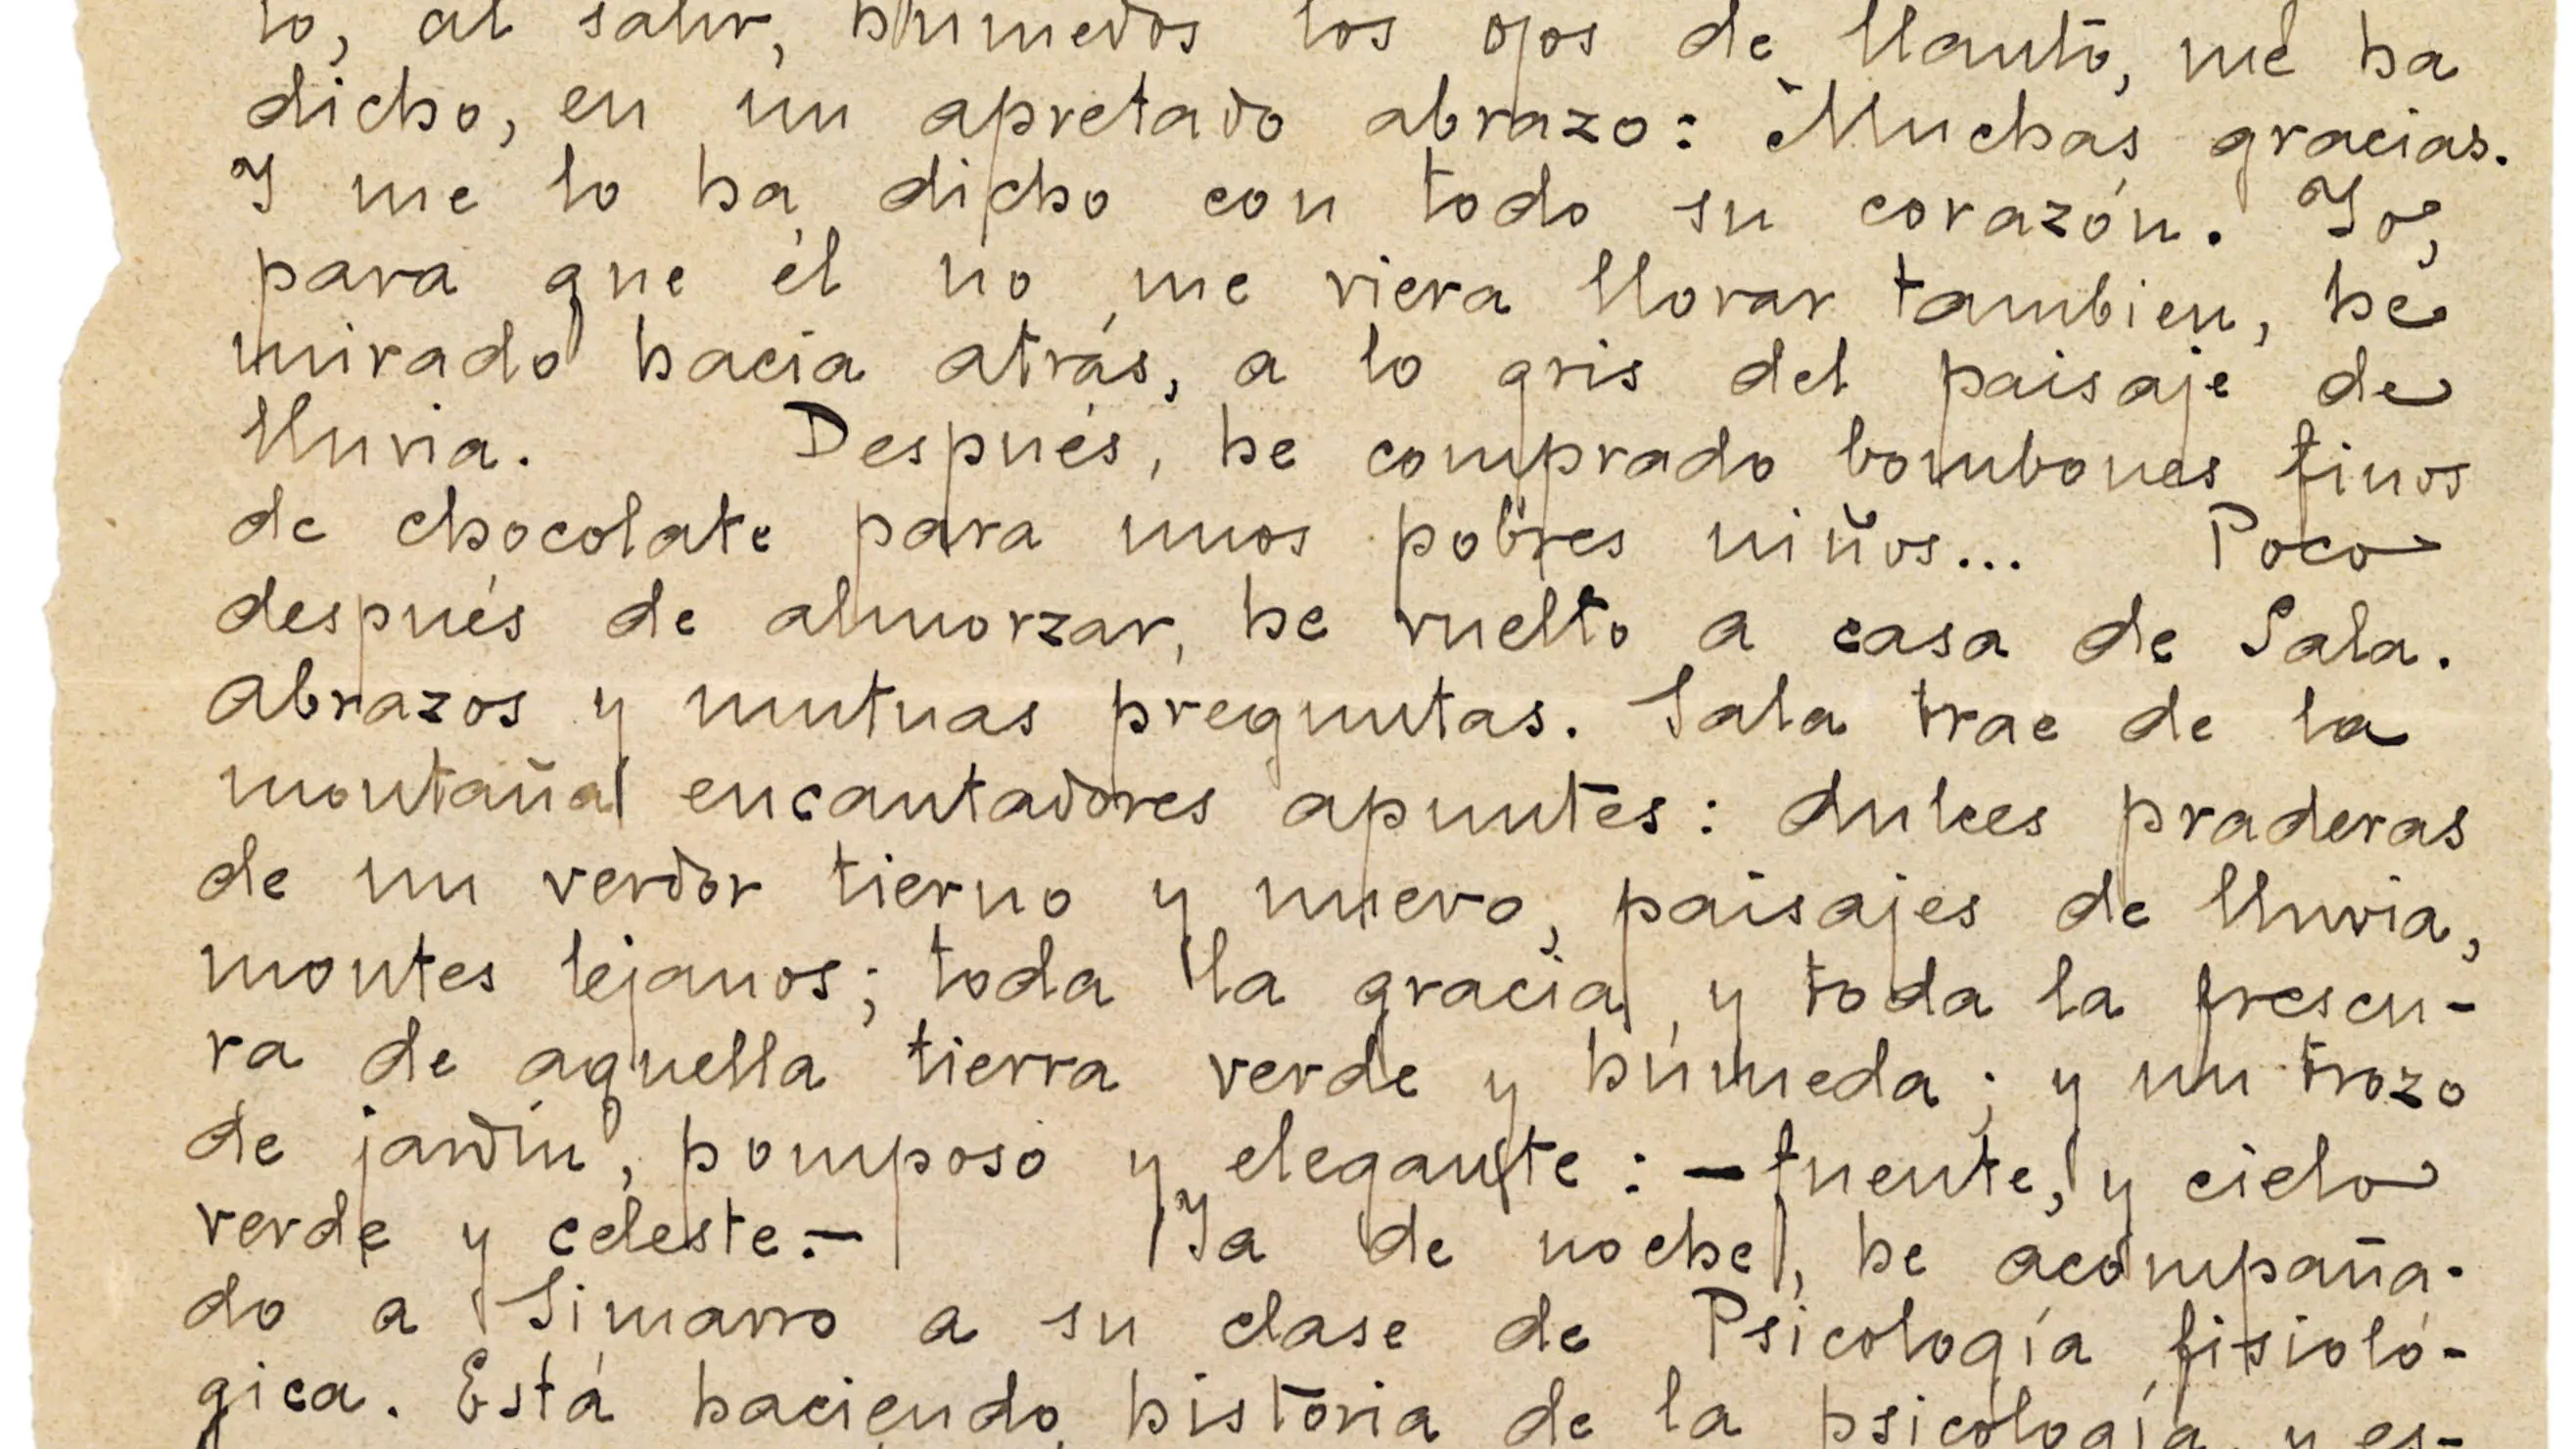 to, al salir, húmedos los ojos de llanto, me ha
dicho, en un apretado abrazo: Muchas gracias.
Y me lo ha dicho con todo su corazón. Yo,
para que él no me viera llorar tambien, he
mirado hacia atrás, a lo gris del paisaje de
lluvia. Después, he comprado bombones finos
de chocolate para unos pobres niños... Poco
después de almorzar, he vuelto a casa de Sala.
Abrazos y mutuas preguntas. Sala trae de la
montaña encantadores apuntes: dulces praderas
de un verdor tierno y nuevo, paisajes de lluvia,
montes lejanos; toda la gracia y toda la frescu-
ra de aquella tierra verde y húmeda; y un trozo
de jardín, pomposo y elegante: —fuente, y cielo
verde y celeste.— Ya de noche, he acompaña-
do a Simarro a su clase de Psicología fisioló-
gica. Está haciendo historia de la psicología, y es-